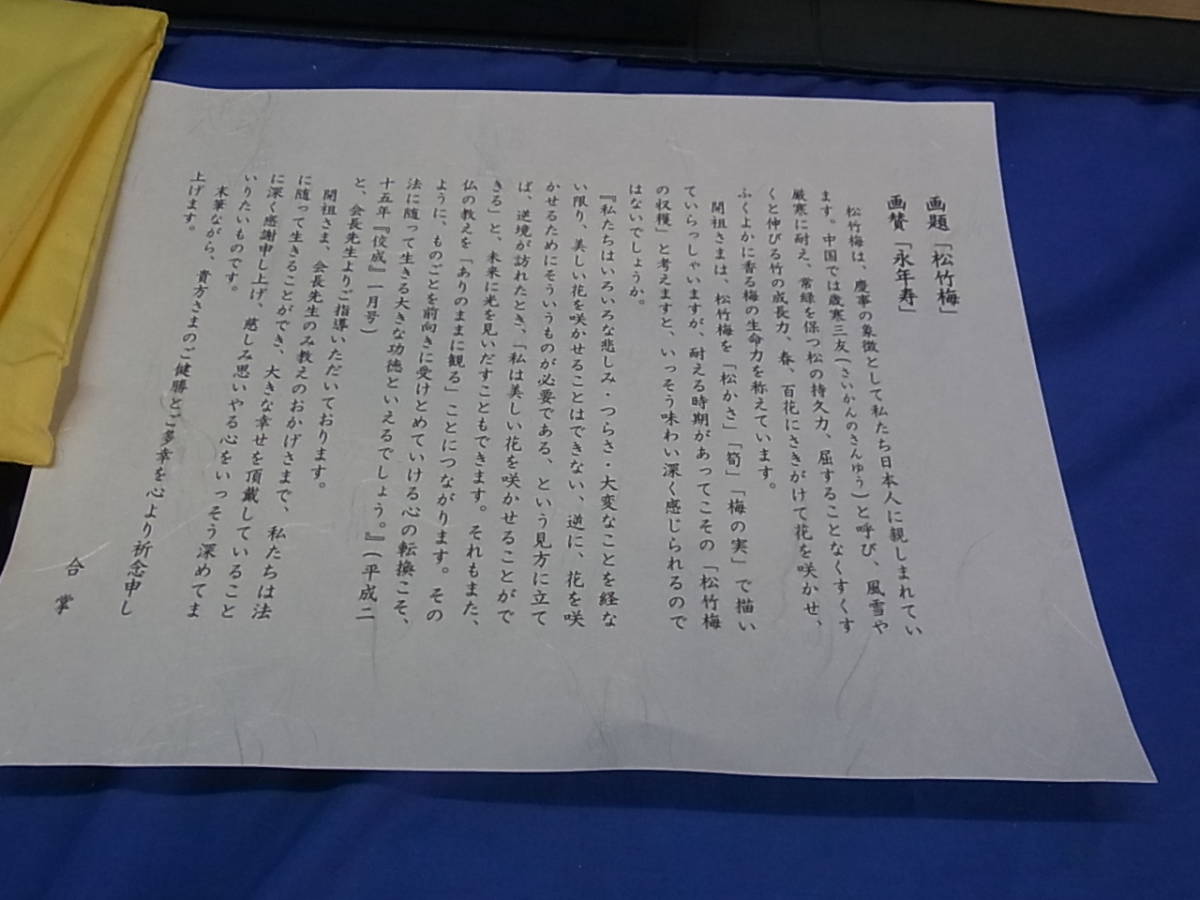 画題「松竹梅」
画賛「永年寿」
松竹梅は、慶事の象徴として私たち日本人に親しまれてい
ます。中国では歳寒三友(さいかんのさんゆう)と呼び、風雪や
厳寒に耐え、常緑を保つ松の持久力、屈することなくすくす
くと伸びる竹の成長力、春、百花にさきがけて花を咲かせ、
ふくよかに香る梅の生命力を称えています。
開祖さまは、松竹梅を「松かさ」「筍」「梅の実」で描い
ていらっしゃいますが、耐える時期があってこその「松竹梅
の収穫」と考えますと、いっそう味わい深く感じられるので
はないでしょうか。
『私たちはいろいろな悲しみ・つらさ・大変なことを経な
い限り、美しい花を咲かせることはできない、逆に、花を咲
かせるためにそういうものが必要である、という見方に立て
ば、逆境が訪れたとき、「私は美しい花を咲かせることがで
きる」と、未来に光を見いだすこともできます。それもまた、
仏の教えを「ありのままに観る」ことにつながります。その
ように、ものごとを前向きに受けとめていける心の転換こそ、
法に随って生きる大きな功徳といえるでしょう。』(平成二
十五年『佼成』一月号)
と、会長先生よりご指導いただいております。
開祖さま、会長先生のみ教えのおかげさまで、私たちは法
に随って生きることができ、大きな幸せを頂戴していること
に深く感謝申し上げ、慈しみ思いやる心をいっそう深めてま
いりたいものです。
末筆ながら、貴方さまのご健勝とご多幸を心より祈念申し
上げます。
合掌